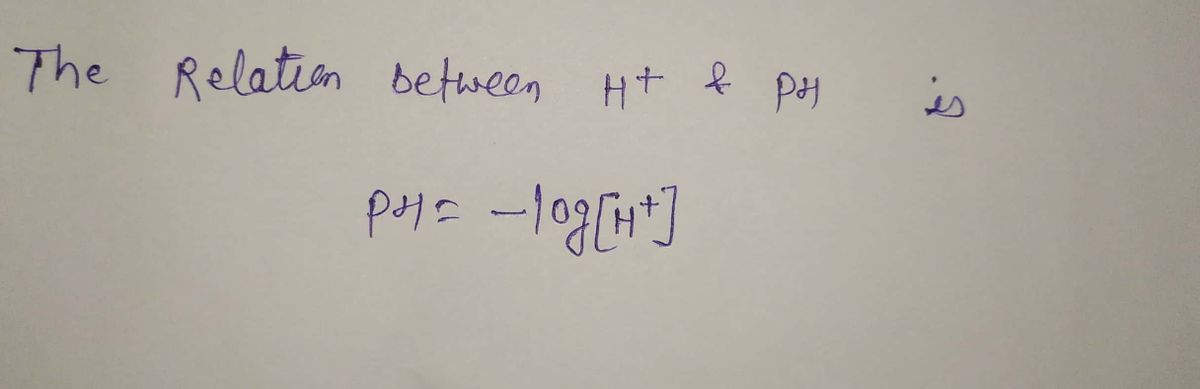 The Relation between H+ & PH is
PH = -log[H+]